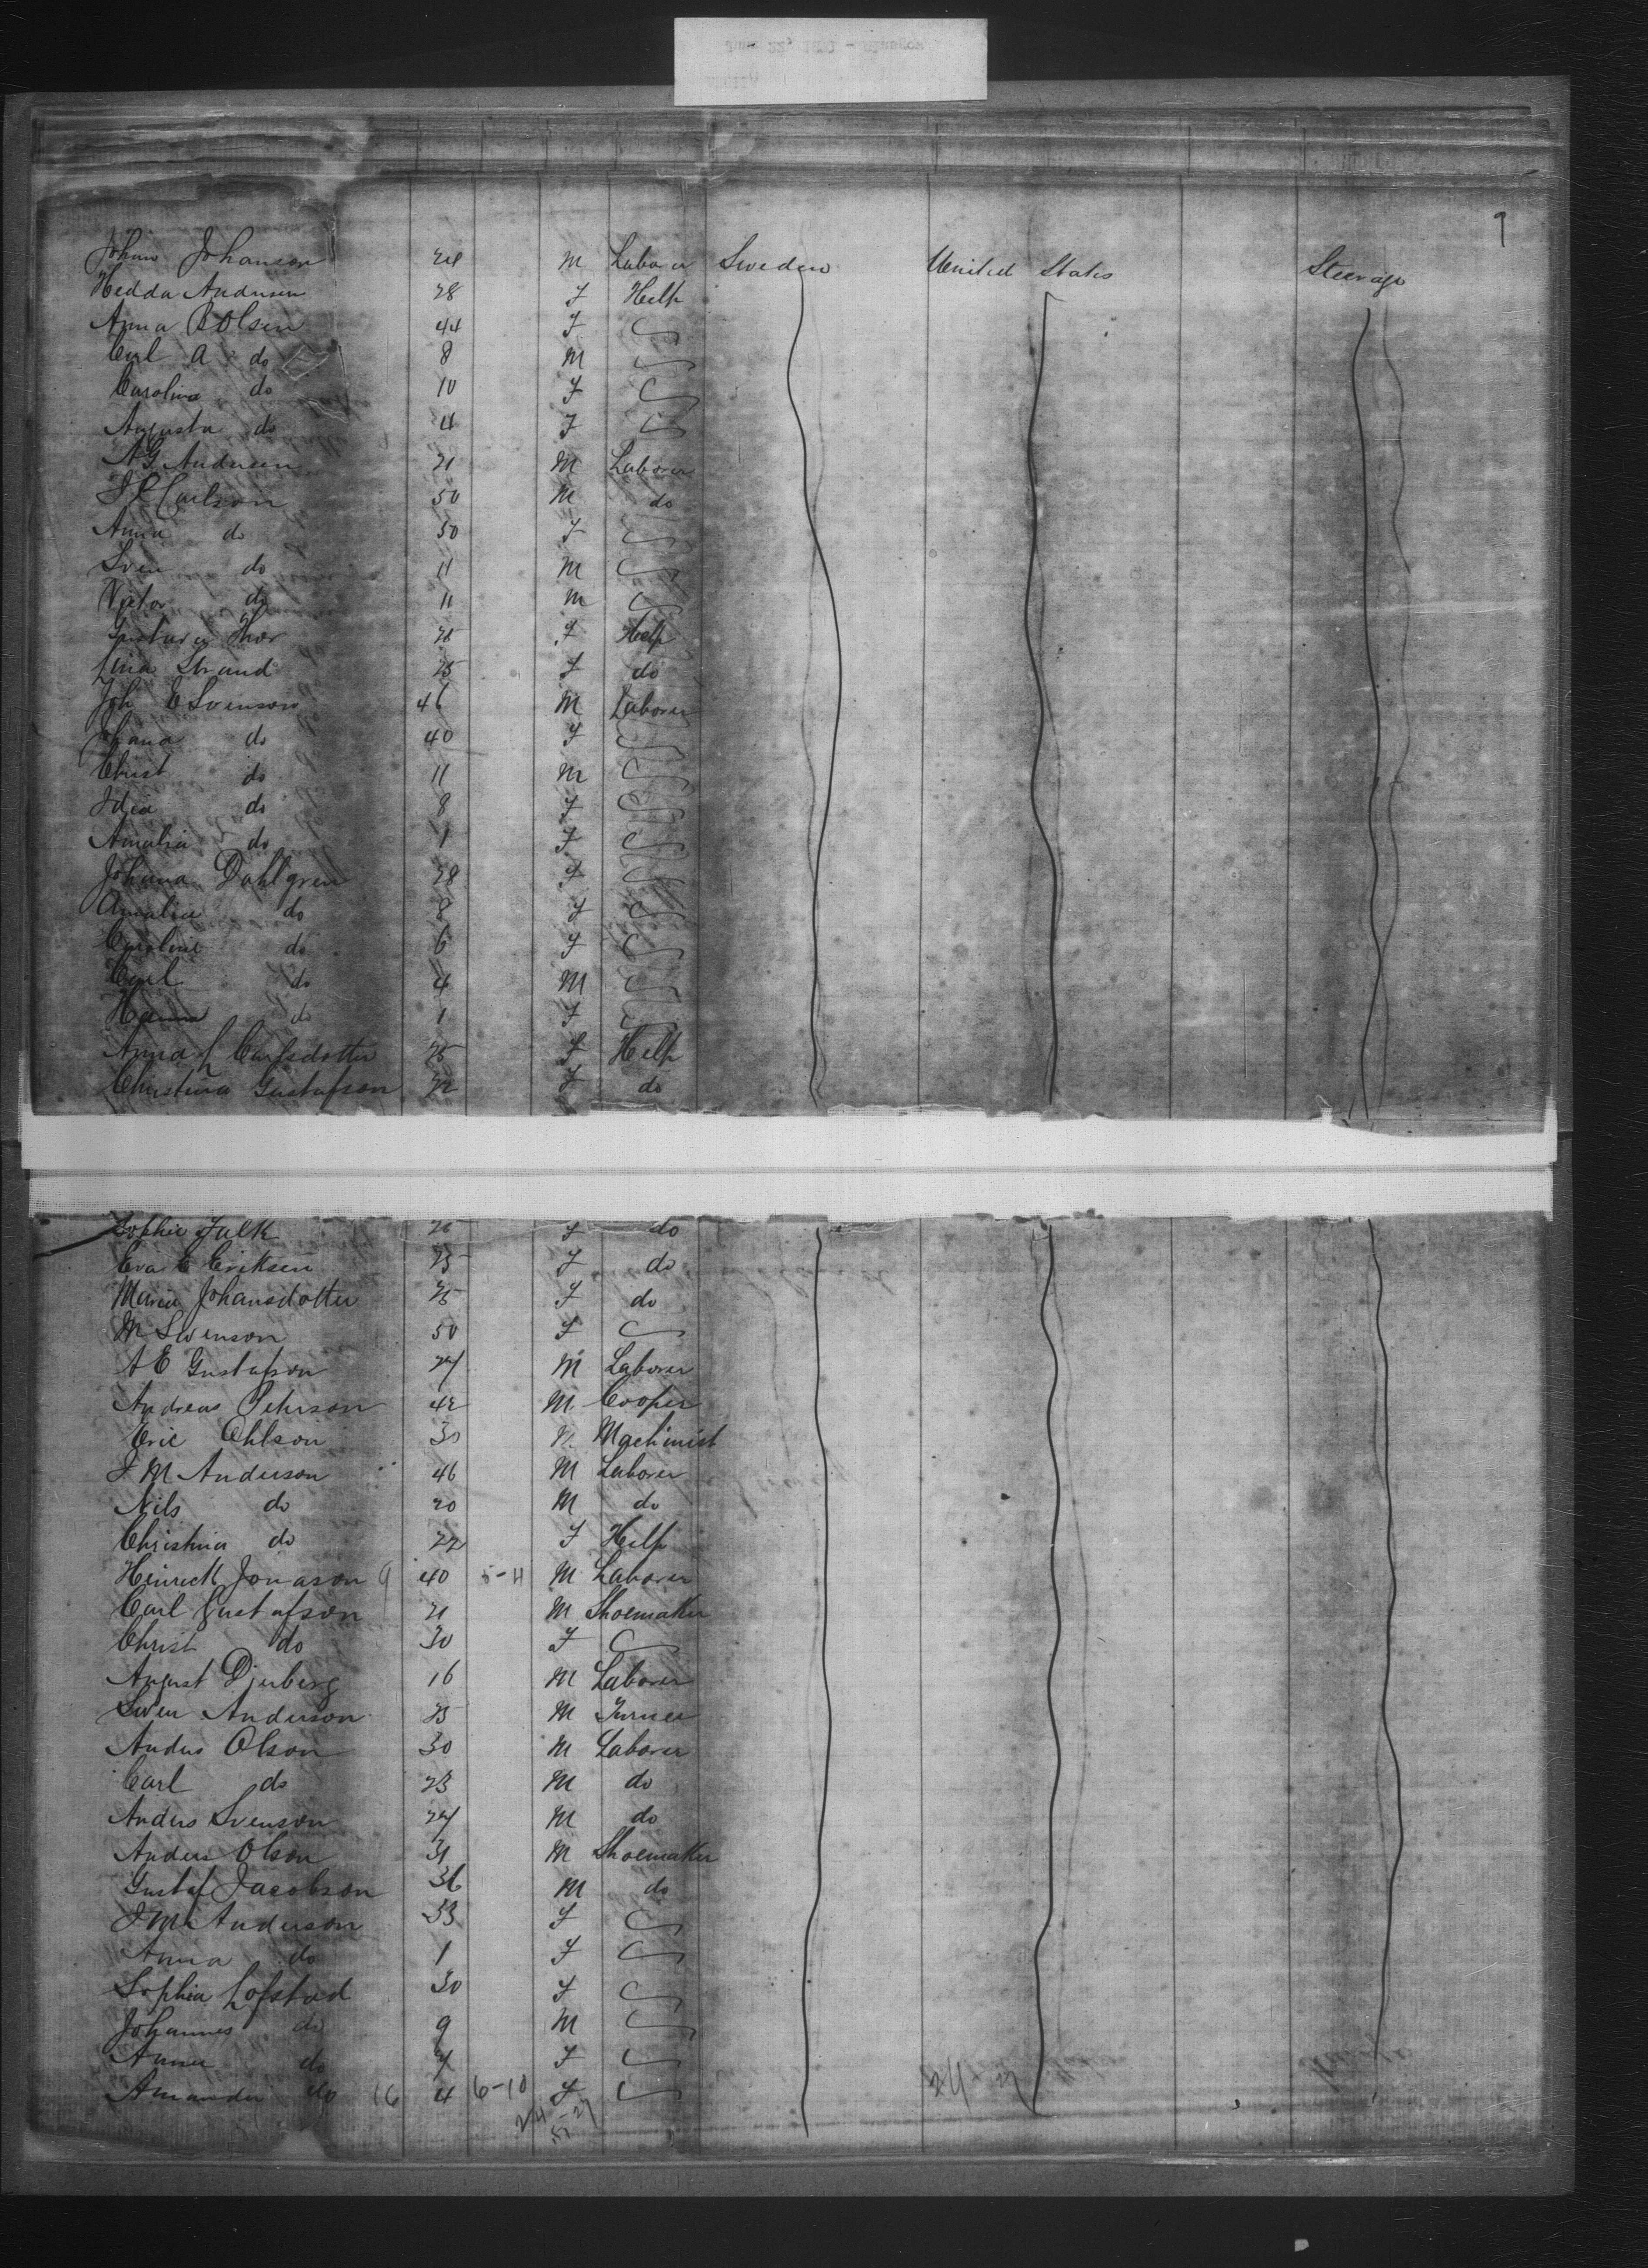 9
Johan Johanson 24 M Laborer Sweden United States Steerage
Hedda Andersen 28 F Help
Anna B Olsen 44 F
Carl A do 8 M
Carolina do 10 F
Augusta do 4 F
A G Andersen 21 M Laborer
Carlson 50 M do
Anna do 50 F
Sven do 11 M
Victor do 11 M
F Help
Lina Strand 25 F do
Joh E Svenson 46 M Laborer
Johana do 40 F
Christ do 11 M
Idea do 8 F
Amalia do 1 F
Johana Dahlgren 28 F
Amalia do 8 F
Caroline do 6 F
Carl do 4 M
Hanna do 1 F
Anna L Carlsdotter 25 F Help
Christina Gustafson 22 F do
Sophie Falk 26 F do
Eva C Eriksen 25 F do
Maria Johansdotter 25 F do
M Swenson 50 F
A E Gustafson 24 M Laborer
Andreas Pehrson 42 M Cooper
Eric Ohlson 30 M Machinist
J M Anderson 46 M Laborer
Nils do 20 M do
Christina do 22 F Help
Heinrick Jonason 9 40 5-4 M Laborer
Carl Gustafson 21 M Shoemaker
Christ do 30 F
August Djurberg 16 M Laborer
Swen Anderson 25 M Turner
Andus Olson 30 M Laborer
Carl do 23 M do
Anders Svenson 24 M do
Anders Olson 31 M Shoemaker
Gustaf Jacobson 36 M do
J M Anderson 33 F
Anna do 1 F
Sophia Lofstad 30 F
Johannes do 9 M
Anna do 7 F
Amanda do 16 4 6-10 F
24 27